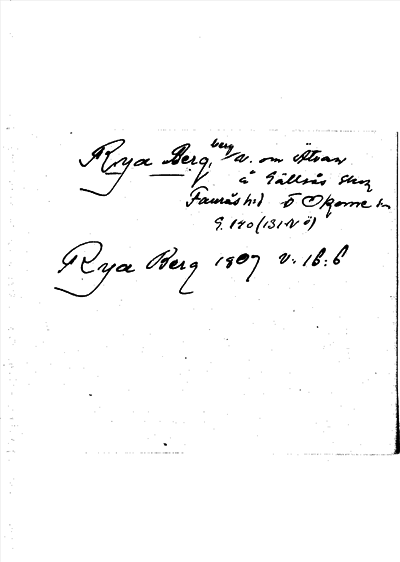 Rya Berg, berg v. om Ätran
å Gällsås skog
Faurås hd Ö Okome sn
G. 140 (131 N Ö)
Rya Berg 1807 v. 16:6